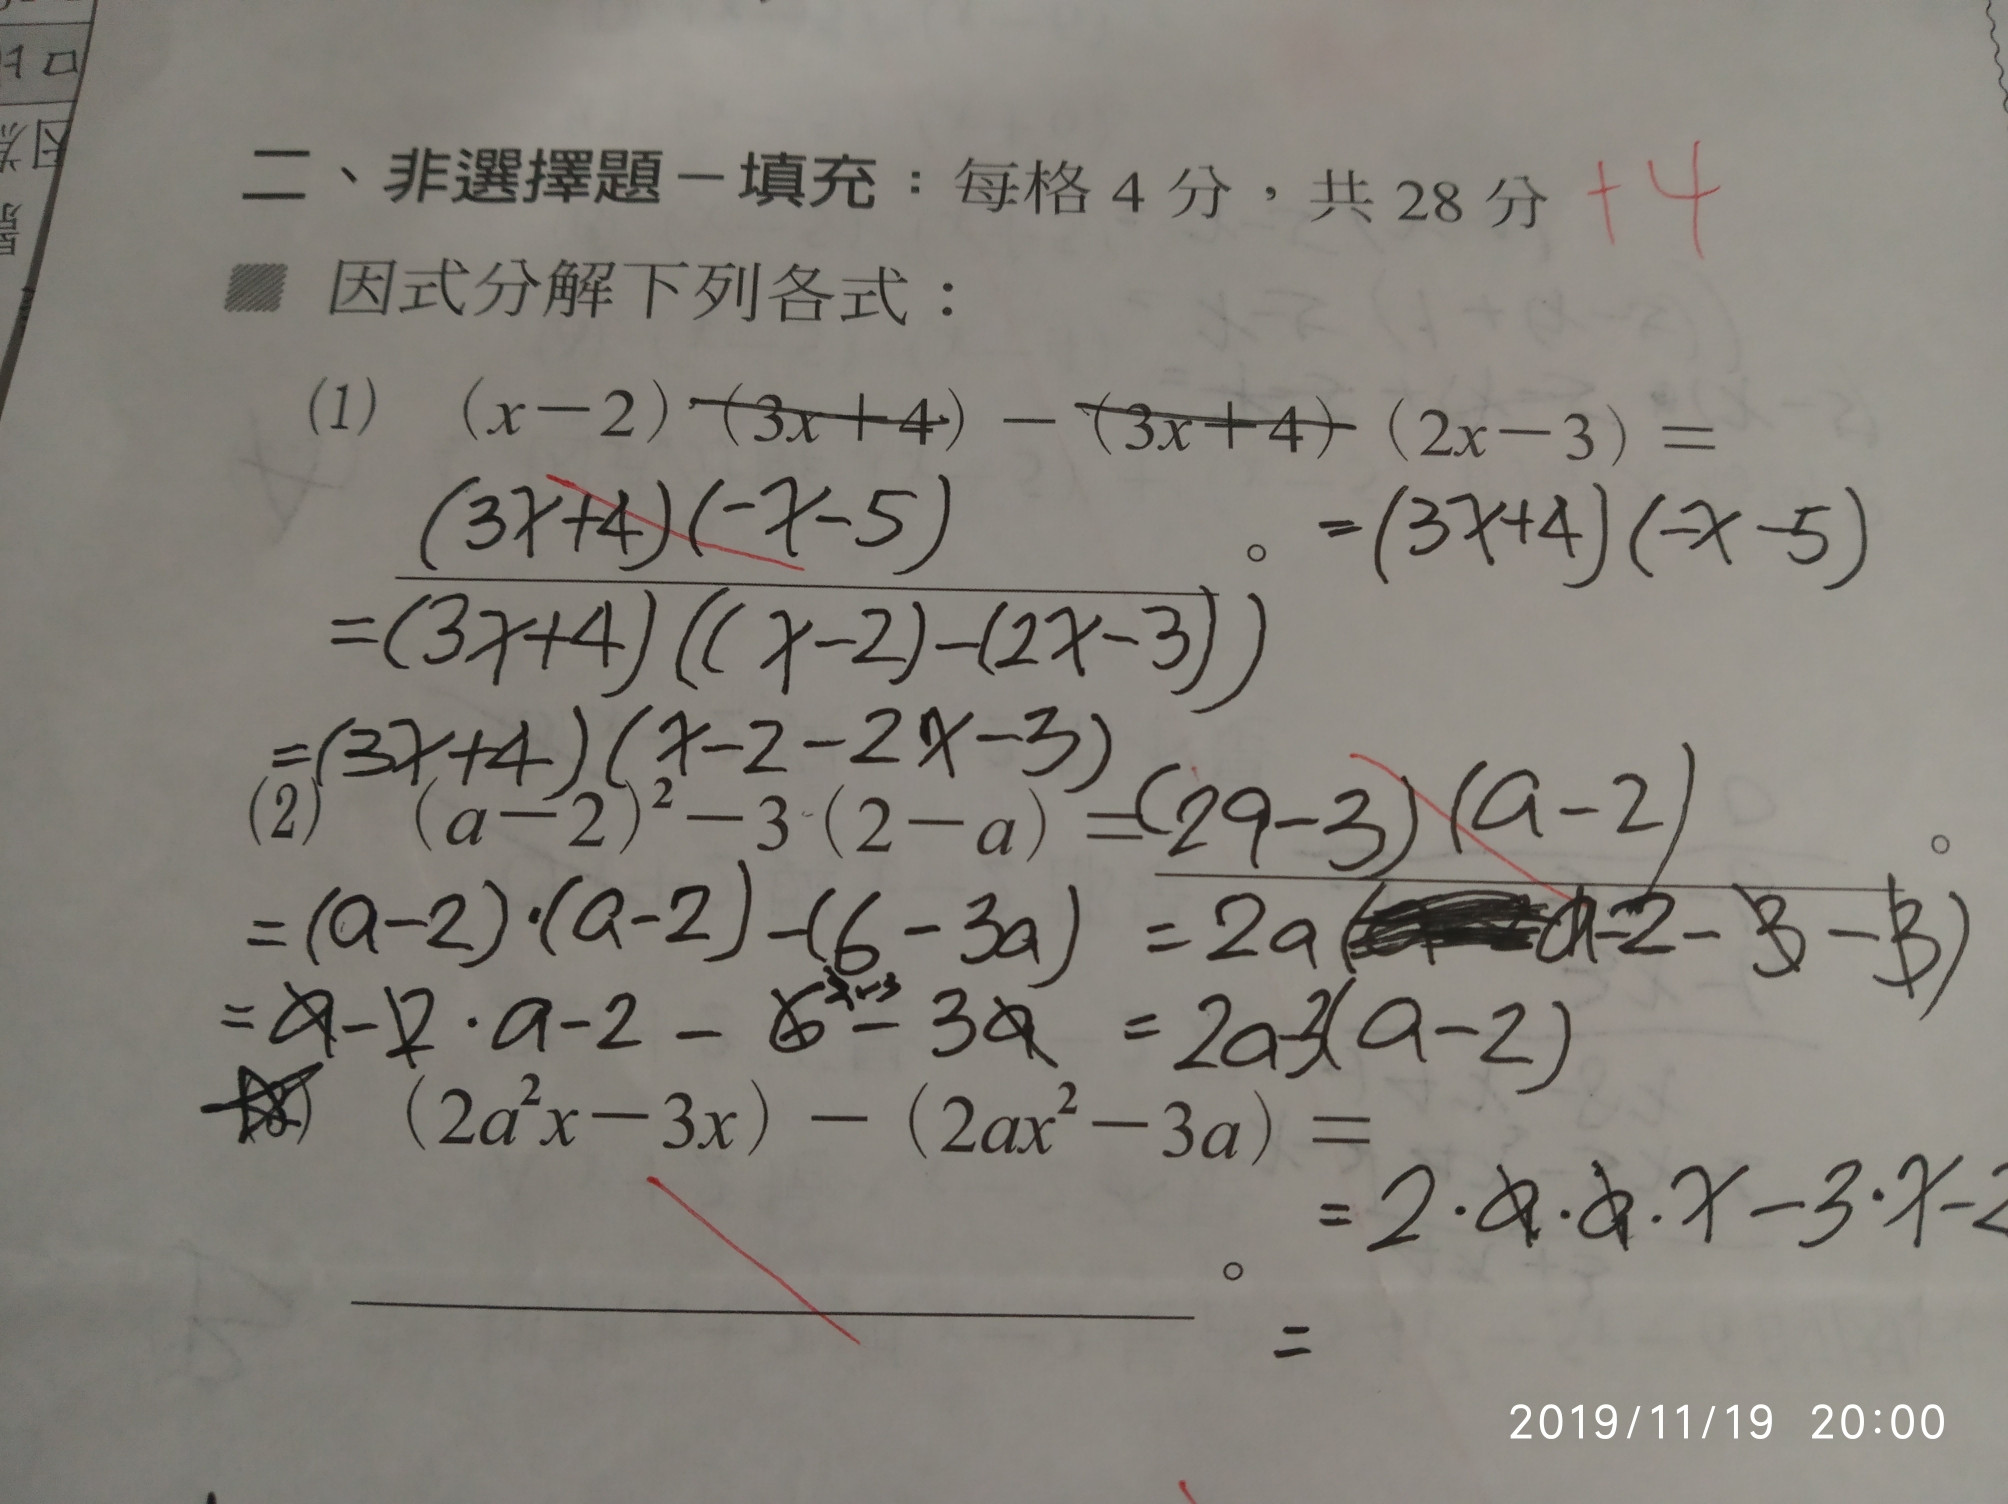 二、非選擇題－填充：每格 4 分，共 28 分 +4
因式分解下列各式：
(1) (x－2)(3x＋4)－(3x＋4)(2x－3)＝
(3x+4)(-x-5)。=(3x+4)(-x-5)
=(3x+4)((x-2)-(2x-3))
=(3x+4)(x-2-2x-3)
(2) (a－2)²－3(2－a)＝(2a-3)(a-2)。
=(a-2)·(a-2)-(6-3a) =2a(a-2-3-3)
=a-2·a-2-6-3a =2a-3(a-2)
(3) (2a²x－3x)－(2ax²－3a)＝
=2·a·a·x-3·x-2
。
=
2019/11/19 20:00